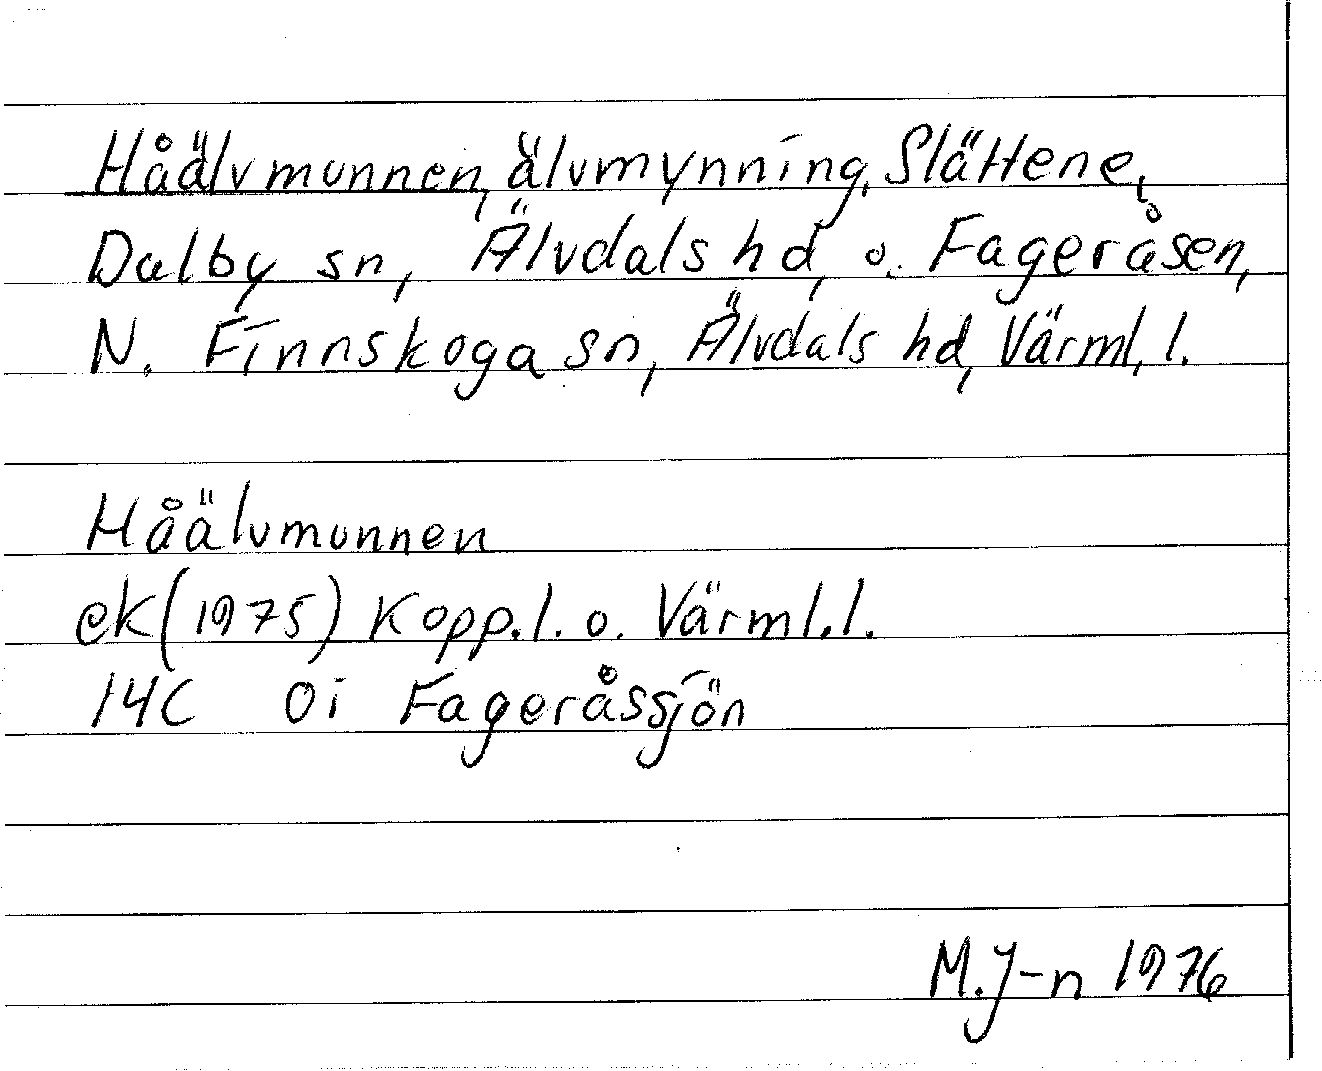 Håälvmunnen, älvmynning, Slättene,
Dalby sn, Älvdals hd, o. Fageråsen,
N. Finnskoga sn, Älvdals hd, Värml. l.
Håälvmunnen
ek (1975) Kopp. l. o. Värml. l.
14C 0i Fageråssjön
M. J-n 1976